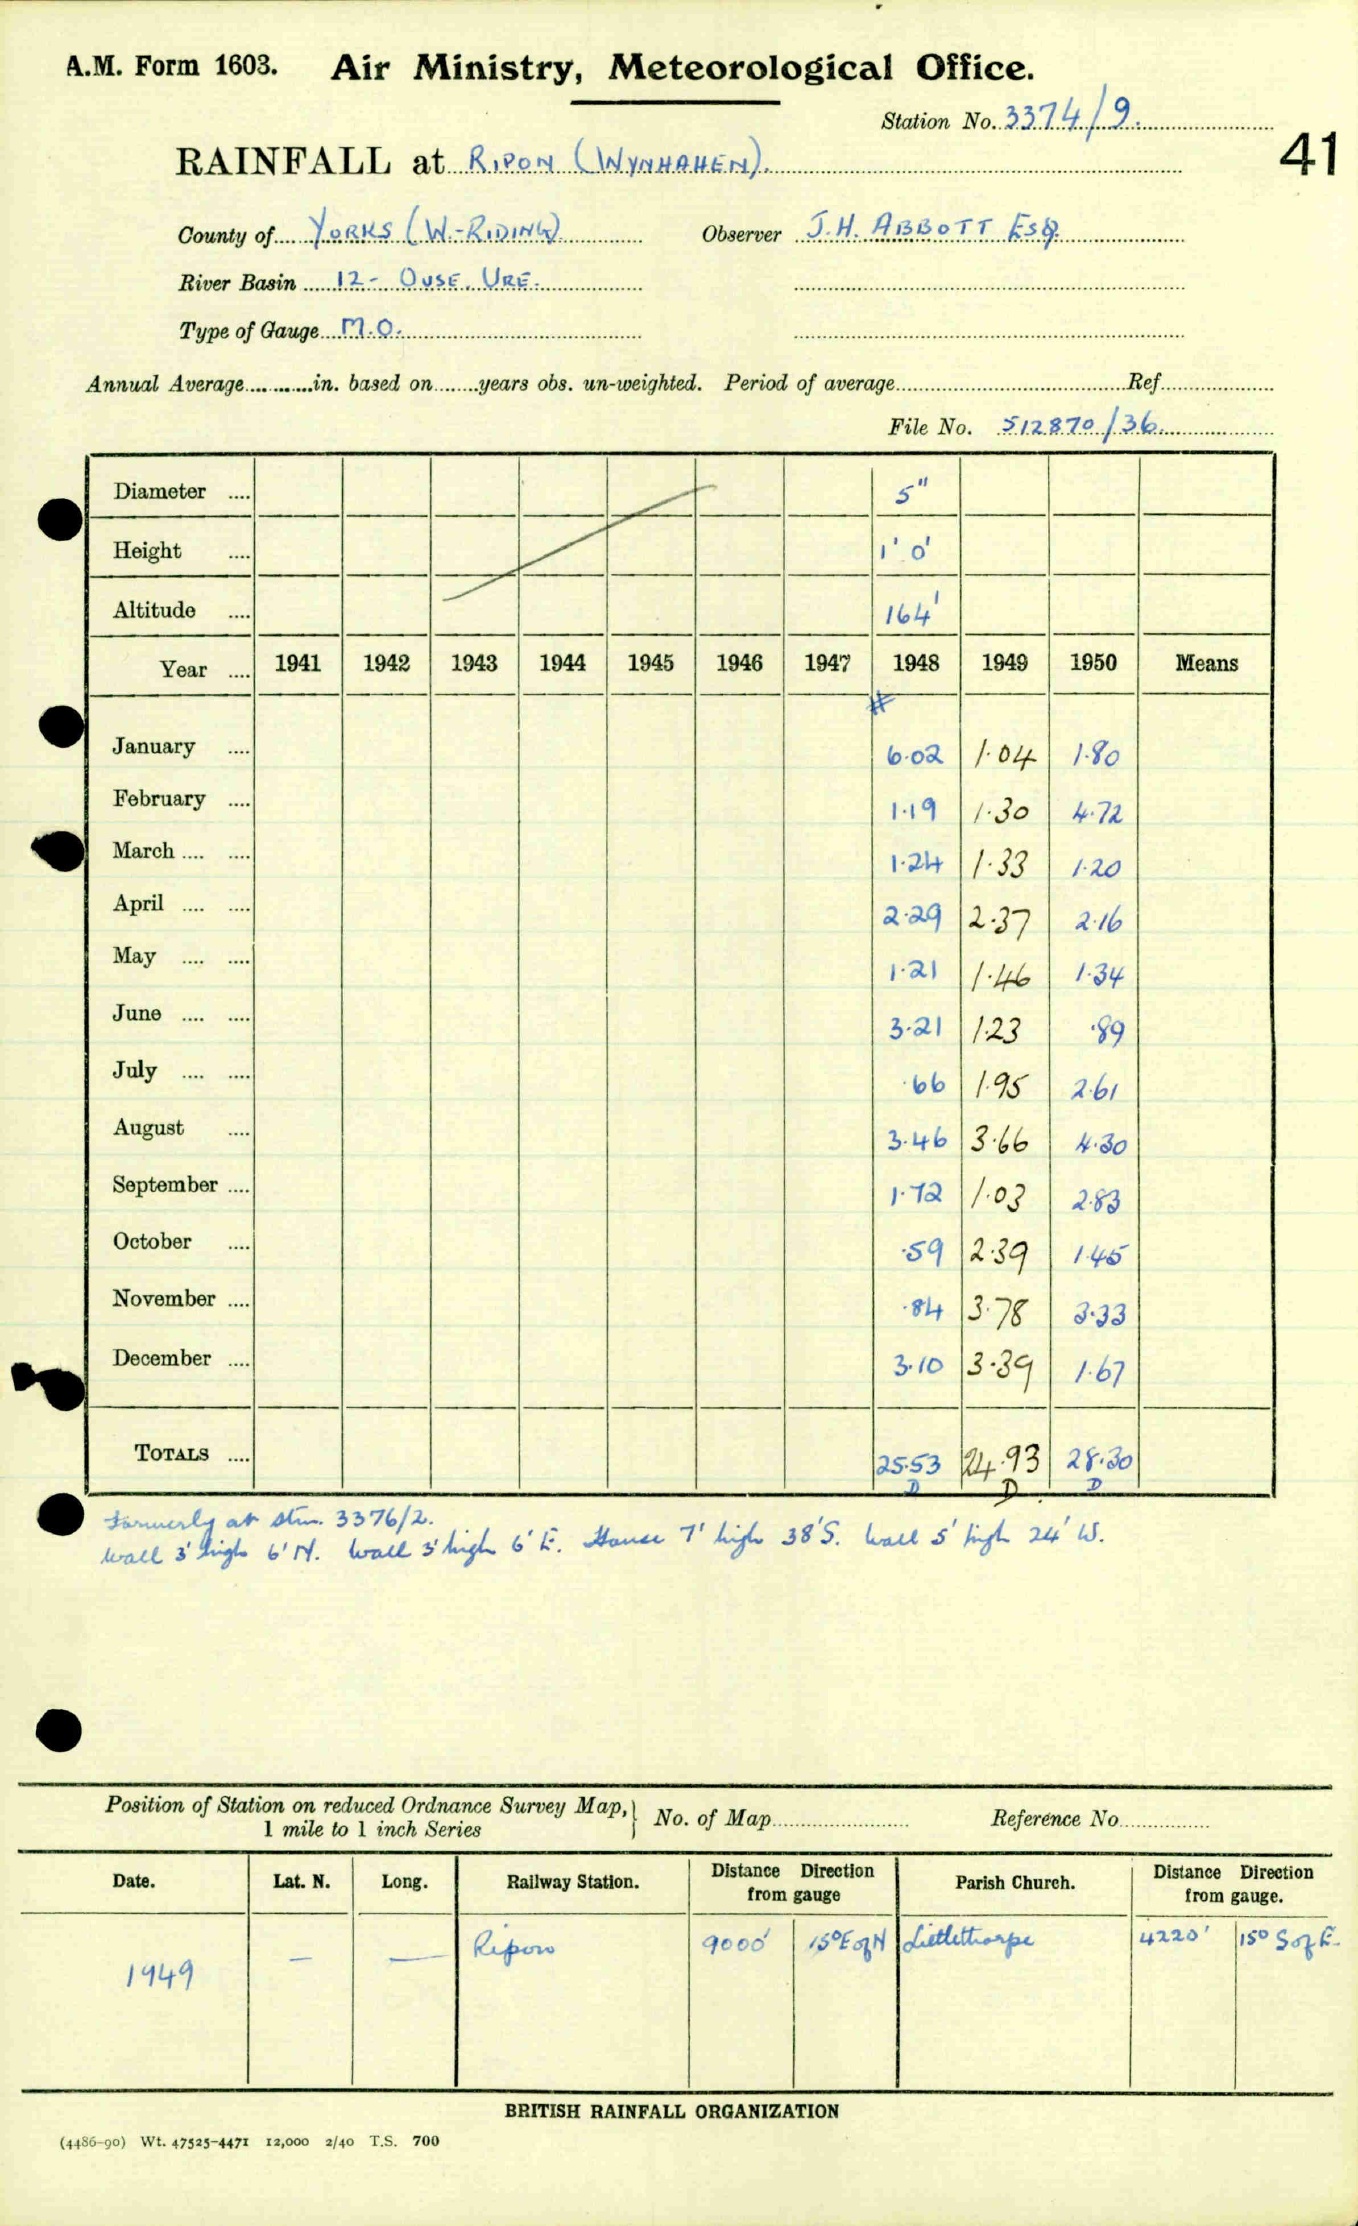 A.M. Form 1603. Air Ministry, Meteorological Office.
Station No. 3374/9.
41
RAINFALL at RIPON (WYNHAHEN).
County of YORKS (W.-RIDING) Observer J.H. ABBOTT ESQ.
River Basin 12- OUSE. URE.
Type of Gauge M.O.
Annual Average............in. based on........years obs. un-weighted. Period of average........Ref........
File No. 512870/36
Diameter .... 5"
Height .... 1' 0'
Altitude .... 164'
Year .... 1941 1942 1943 1944 1945 1946 1947 1948 1949 1950 Means
#
January .... 6.02 1.04 1.80
February .... 1.19 1.30 4.72
March .... .... 1.24 1.33 1.20
April .... .... 2.29 2.37 2.16
May .... .... 1.21 1.46 1.34
June .... .... 3.21 1.23 .89
July .... .... .66 1.95 2.61
August .... 3.46 3.66 4.30
September .... 1.72 1.03 2.83
October .... .59 2.39 1.45
November .... .84 3.78 3.33
December .... 3.10 3.39 1.67
TOTALS .... 25.53 24.93 28.30
D D. D
Formerly at stn. 3376/2.
Wall 3' high 6' N. Wall 3' high 6' E. House 7' high 38' S. Wall 5' high 24' W.
Position of Station on reduced Ordnance Survey Map, } No. of Map........ Reference No........
1 mile to 1 inch Series
Date. Lat. N. Long. Railway Station. Distance Direction from gauge Parish Church. Distance Direction from gauge.
1949 — — Ripon 9000' 15° E of N Littlethorpe 4220' 15° S of E.
BRITISH RAINFALL ORGANIZATION
(4486-90) Wt. 47525-4471 12,000 2/40 T.S. 700